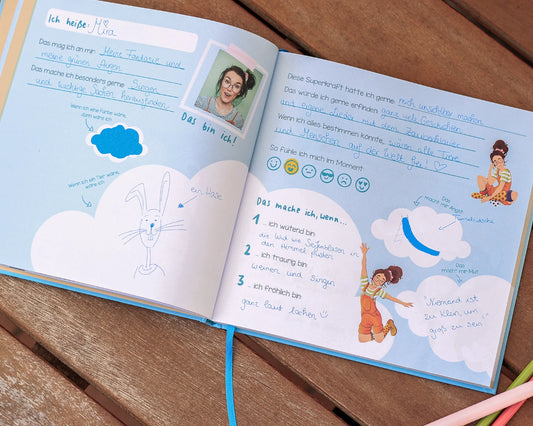 Ich heiße: Mira
Das mag ich an mir: Meine Fantasie und
meine grünen Augen
Das mache ich besonders gerne: Singen
und knifflige Sachen herausfinden
Wenn ich eine Farbe wäre,
dann wäre ich
Das bin ich!
Wenn ich ein Tier wäre,
wäre ich
ein Hase
Diese Superkraft hätte ich gerne: mich unsichtbar machen
Das würde ich gerne erfinden: ganz viele Geschichten
und eigene Lieder mit dem Zauberhasen
Wenn ich alles bestimmen könnte, wären alle Tiere
und Menschen auf der Welt frei!
So fühle ich mich im Moment
Das mache ich, wenn...
1 ... ich wütend bin
die Wut wie Seifenblasen in
den Himmel pusten
2 ... ich traurig bin
weinen und Singen
3 ... ich fröhlich bin
ganz laut lachen
Das
macht mir Angst
Das
macht mir Mut
"Niemand ist
zu klein, um
groß zu sein."